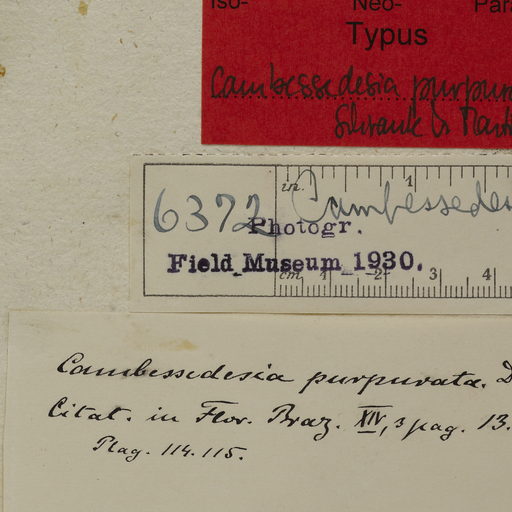 Iso- Neo- Para
Typus
Cambessedesia purpura
Schrank & Mart
in. 1
6372 Cambessedes
Photogr.
Field Museum 1930.
cm 1 2 3 4
Cambessedesia purpurata. D
Citat. in Flor. Braz. XIV, 3 pag. 13.
Plag. 114. 115.